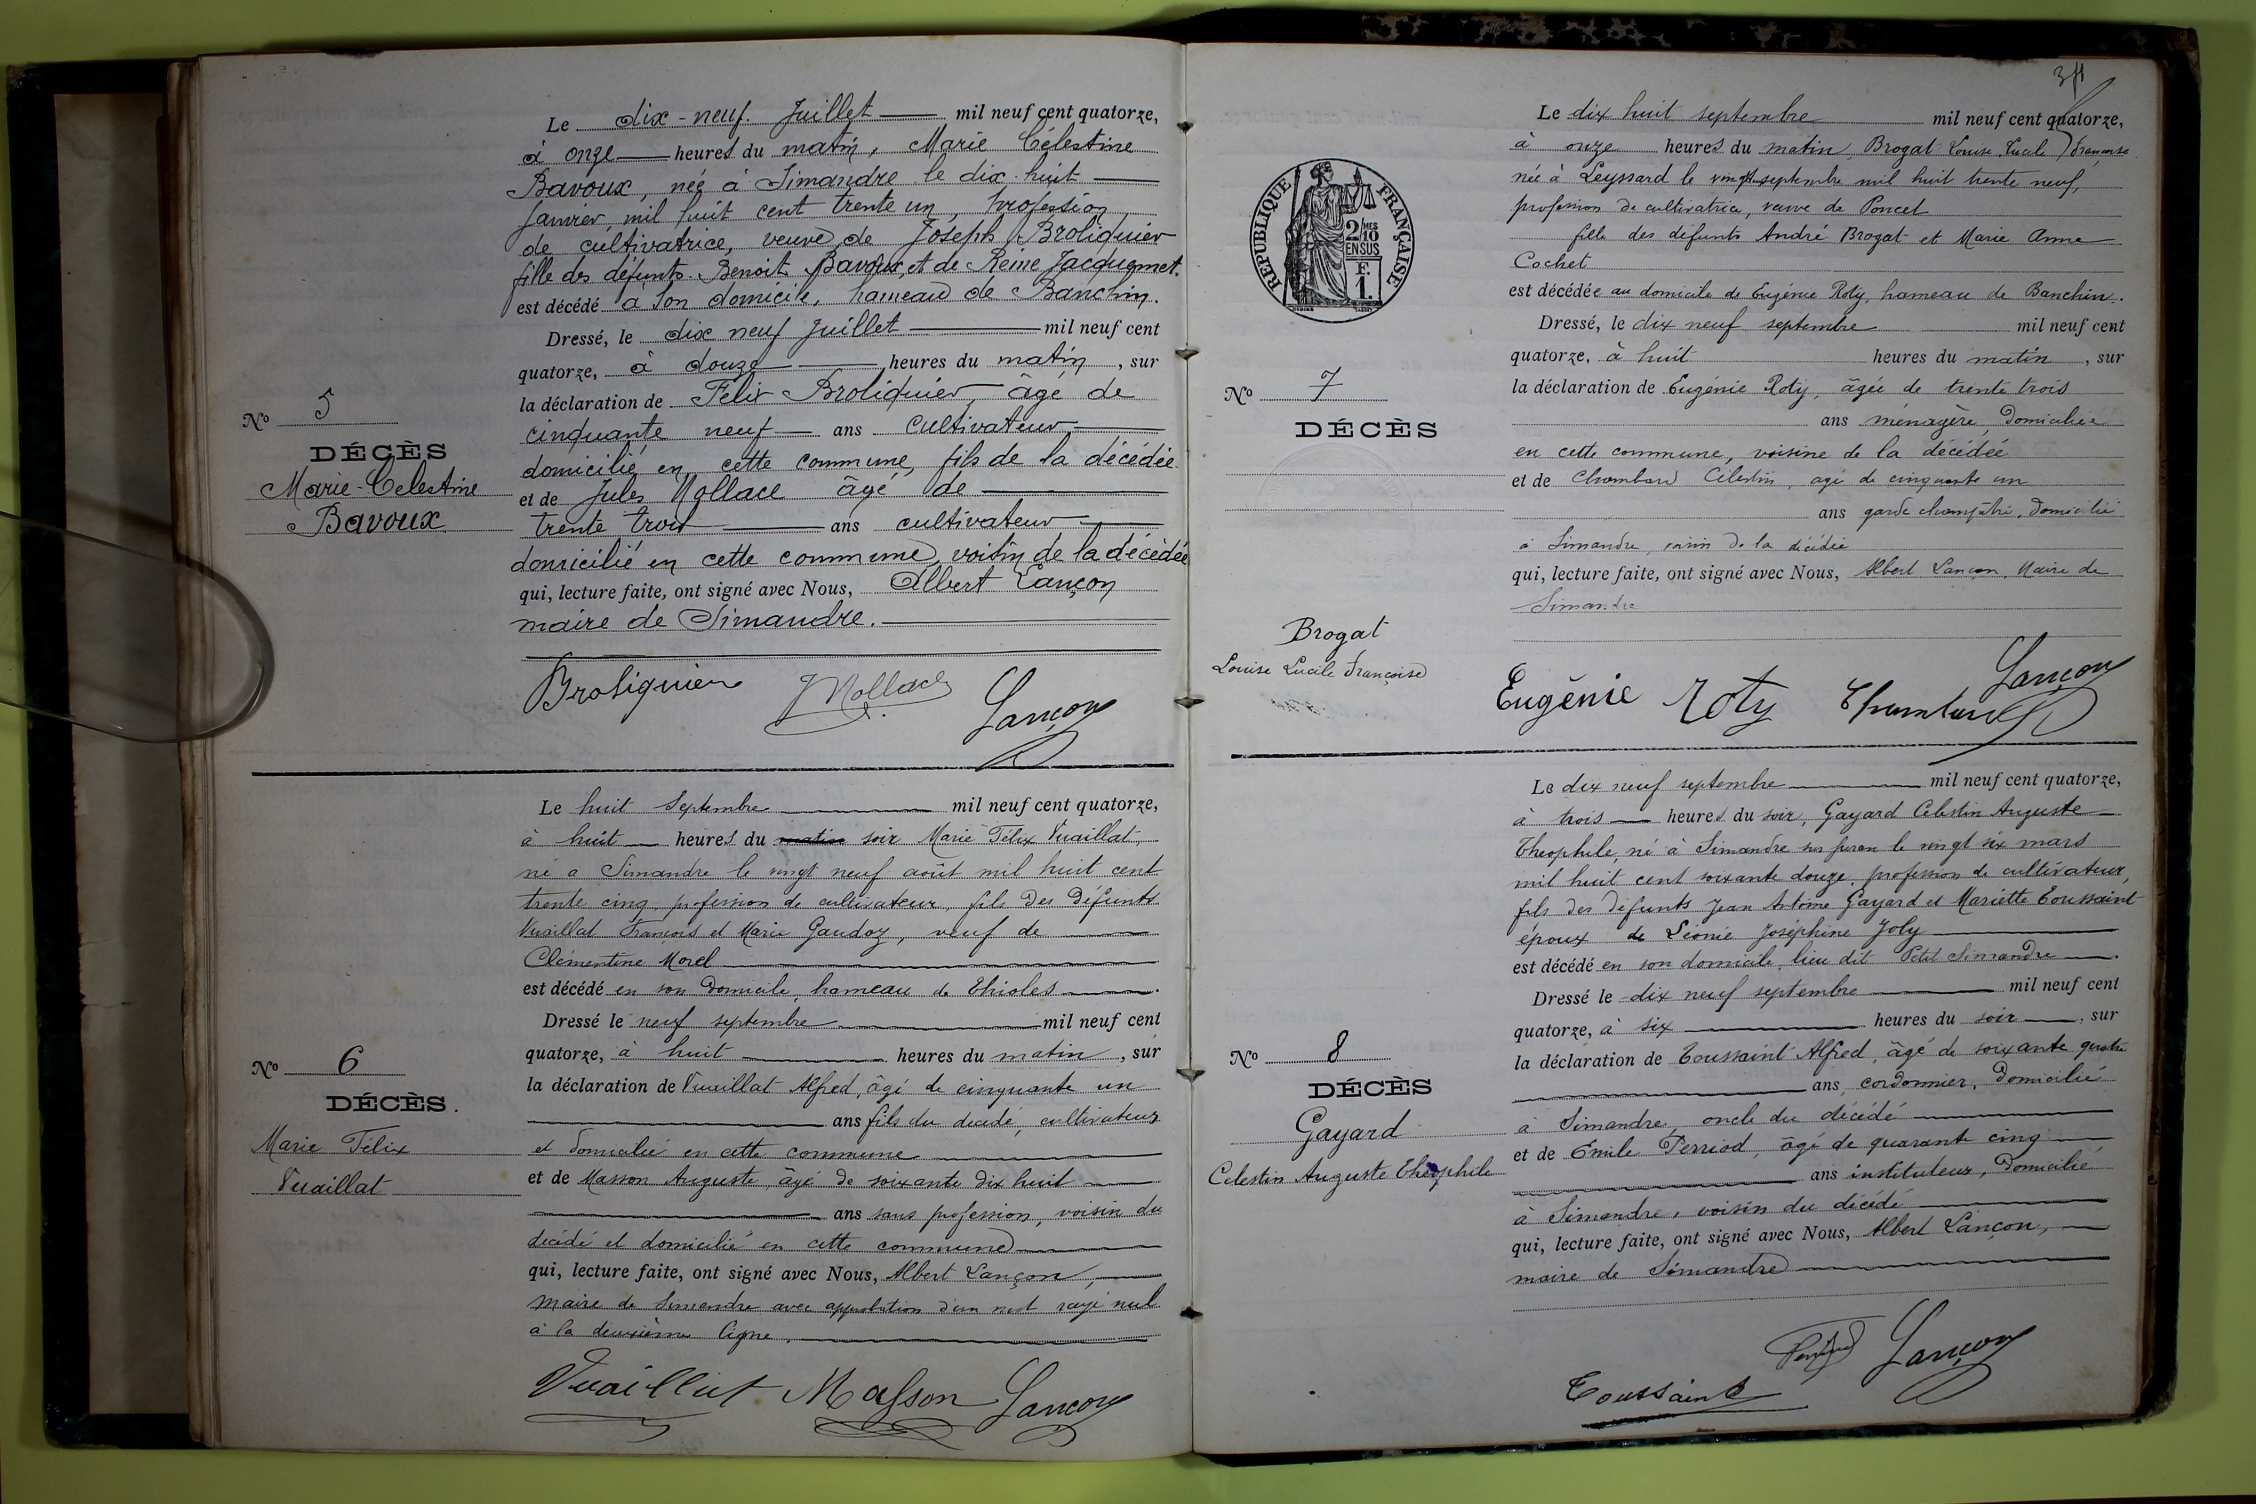 Le dix-neuf Juillet mil neuf cent quatorze,
à onze heures du matin, Marie Célestine
Bavoux, née à Simandre le dix-huit
Janvier mil huit cent trente un, profession
de cultivatrice, veuve de Joseph Broliquier
fille des défunts Benoit Bavoux, et de Reine Jacquemet.
est décédé à son domicile, hameau de Banchin.
Dressé, le dix neuf Juillet mil neuf cent
quatorze, à douze heures du matin, sur
la déclaration de Félix Broliquier, âgé de
cinquante neuf ans cultivateur
domicilié en cette commune, fils de la décédée
et de Jules Mollace âgé de
trente trois ans cultivateur
domicilié en cette commune, voisin de la décédée
qui, lecture faite, ont signé avec Nous, Albert Lançon
maire de Simandre.
Broliquier JMollace Lançon
No 5
DÉCÈS
Marie-Celestine
Bavoux
Le huit Septembre mil neuf cent quatorze,
à huit heures du matin soir Marie Félix Vuaillat,
né à Simandre le vingt neuf août mil huit cent
trente cinq, profession de cultivateur, fils des défunts
Vuaillat François et Marie Gaudoz, veuf de
Clémentine Morel
est décédé en son domicile, hameau de Thioles.
Dressé le neuf septembre mil neuf cent
quatorze, à huit heures du matin, sur
la déclaration de Vuaillat Alfred, âgé de cinquante un
ans fils du décédé, cultivateur
et domicilié en cette commune
et de Masson Auguste, âgé de soixante dix huit
ans sans profession, voisin du
décédé et domicilié en cette commune
qui, lecture faite, ont signé avec Nous, Albert Lançon,
Maire de Simandre avec approbation d'un mot rayé nul
à la deuxième ligne.
Vuaillat Masson Lançon
No 6
DÉCÈS.
Marie Félix
Vuaillat
Le dix huit septembre mil neuf cent quatorze,
à onze heures du matin, Brogat Louise Lucile Françoise
née à Leyssard le vingt septembre mil huit trente neuf,
profession de cultivatrice, veuve de Poncet
fille des défunts André Brogat et Marie Anne
Cochet
est décédée au domicile de Eugénie Roty, hameau de Banchin.
Dressé, le dix neuf septembre mil neuf cent
quatorze, à huit heures du matin, sur
la déclaration de Eugénie Roty, âgée de trente trois
ans ménagère, domiciliée
en cette commune, voisine de la décédée
et de Chambard Célestin, âgé de cinquante un
ans garde champêtre, domicilié
à Simandre, voisin de la décédée
qui, lecture faite, ont signé avec Nous, Albert Lançon, Maire de
Simandre
Eugénie Roty Chambard Lançon
RÉPUBLIQUE FRANÇAISE
2/10 MES
EN SUS
F.
1.
No 7
DÉCÈS
Brogat
Louise Lucile Françoise
Le dix neuf septembre mil neuf cent quatorze,
à trois heures du soir, Gayard Célestin Auguste
Théophile, né à Simandre sur Suran le vingt six mars
mil huit cent soixante douze, profession de cultivateur,
fils des défunts Jean Antoine Gayard et Mariette Toussaint
époux de Léonie Joséphine Joly
est décédé en son domicile, lieu dit Petit Simandre.
Dressé le dix neuf septembre mil neuf cent
quatorze, à six heures du soir, sur
la déclaration de Toussaint Alfred, âgé de soixante quatre
ans, cordonnier, domicilié
à Simandre, oncle du décédé
et de Emile Perriod, âgé de quarante cinq
ans instituteur, domicilié
à Simandre, voisin du décédé
qui, lecture faite, ont signé avec Nous, Albert Lançon,
maire de Simandre
Perriod Lançon
Toussaint
No 8
DÉCÈS
Gayard
Celestin Auguste Théophile